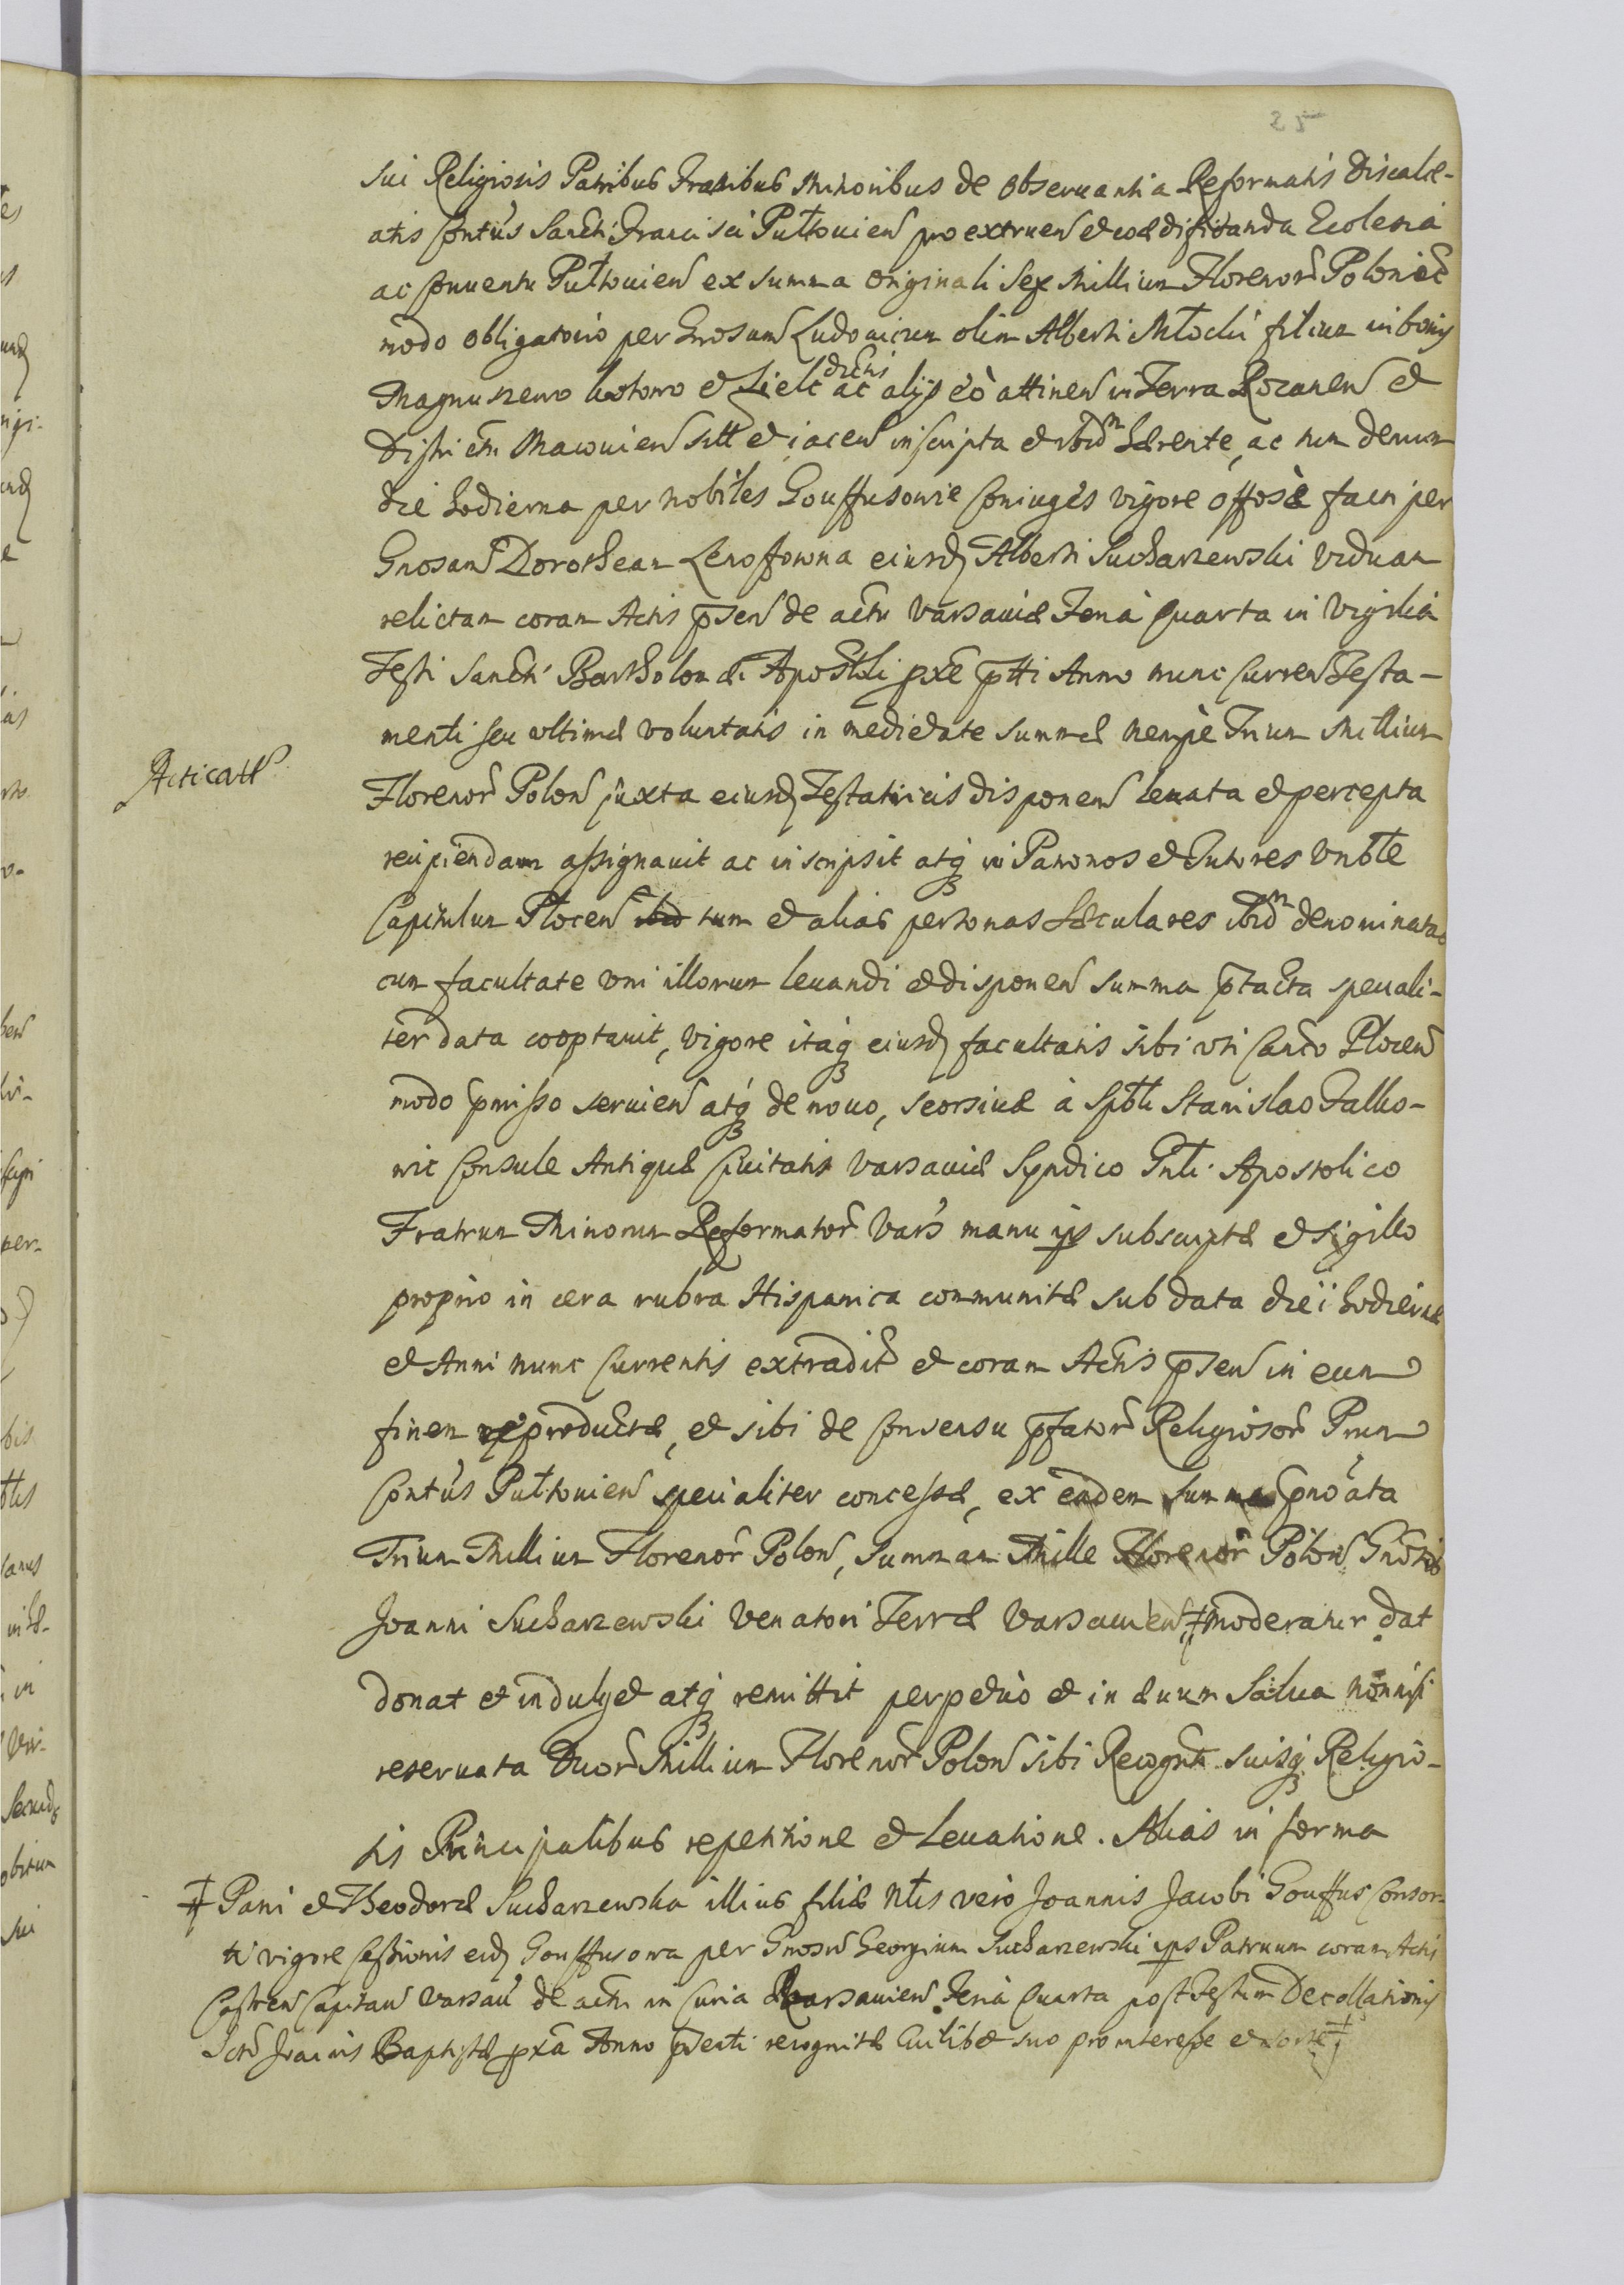 25
sui Religiosis Patribus Fratribus Minoribus de Observantia Reformatis Discalce-
atis Contus Sancti Francisci Pułtouien pro extruen et coædificanda Ecclesia
ac Conventu Pułtouien ex summa originali Sex Millium Florenor Polonic
modo obligatorio per Gnosum Ludovicum olim Alberti Młocki filium in bonis
Magnuszewo et ac dictis alijs eò attinen in Terra Rozanen et
Districtu Macovien sitt et iacen inscripta et ibidm hærente, ac tum demum
die hodierna per Nobiles Gouffusowie Coniuges vigore facti per
Gnosam Dorotheam eiusd Alberti Sucharzewski viduam
relictam coram Actis psen de actu Varsaviæ Feria Quarta in Vigilia
Festi Sancti Bartholomæi Apostoli pxe ptti Anno nunc Curren Testa-
menti seu ultimæ voluntatis in medietate summæ nempè Trium Millium
Acticatt
Florenor Polon juxta eiusd Testatricis disponen levata et percepta
recipiendam assignavit ac inscripsit atq in Patronos et Tutores Vnble
Capitulum Płocen tum et alias personas Sæculares ibidm denominatas
cum facultate vni illorum levandi et disponen summa ptacta speciali-
ter data cooptavit, vigore itaq eiusd facultatis sibi vti Plocen
modo pmisso servien atq de novo, seorsivæ à Sptli Stanislao Falko-
wic Consule Antiquæ Civitatis Varsaviæ Syndico Gnli Apostolico
Fratrum Minorum Reformator Vars manu ips subscriptæ et sigillo
proprio in cera rubra Hispanica communitæ sub data diei hodiernæ
et Anni nunc Currentis extradit et coram Actis psen in eum
finem reproductæ, et sibi de Consensu pfator Religiosor Prum
Contus Pułtouien specialiter concessæ, ex eadem summa
Trium Millium Florenor Polon, Summam Mille Florenor Polon
Joanni Sucharzewski Venatori Terræ Varsavien ‡ moderatur dat
donat et indulget atq remittit perpetuò et in ævum Salva nonnisi
reservata Duor Millium Florenor Polon sibi Recognti suisq Religio-
sis Principalibus repetitione et Levatione. Alias in forma
‡ Pani et Theodoræ Sucharzewska illius filiæ Nlis verò Joannis Jacobi Gouffus Consor-
ti vigore Cessionis eid Gouffusowa per Gnosum Georgium Sucharzewski ips Patruum coram Actis
Castren Capitan Varsav de actu in Curia Varsavien Feria Quarta post Festum Decollationis
Scti Joannis Baptistæ pxa Anno psenti recognitæ Cuilibet suo pro interesse et sorte ‡